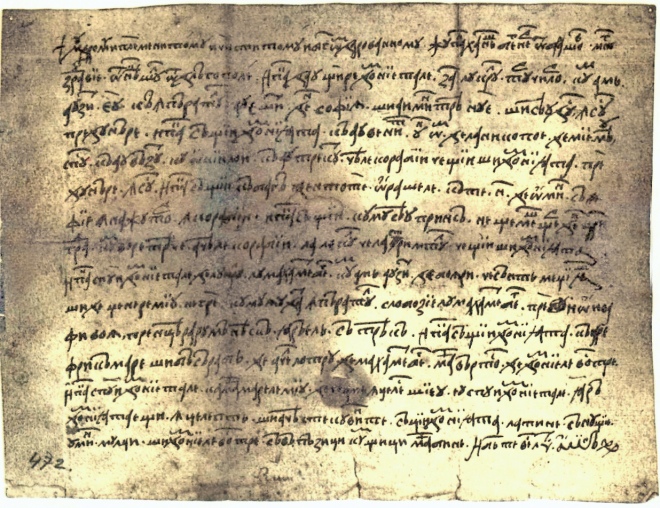 † мудромꙋ и племенитомꙋ и чиститомꙋ и бг҃ѡмь дарованомꙋ жꙋпан ханъш бегнер ѿ брашов мнѡго
здравїе ѿ нѣкшꙋ ѿ длъгополе. и пак дау щире домнїетале. за лукрꙋл тꙋрчилор. кꙋм амь
аузит єꙋ къ ѫпъратꙋл ау єшит ден софїѧ. ши аимитрѣ нꙋ є. ши сѣꙋ дꙋс ѫ сꙋс
пре дꙋнъре. и пак съ щїи домнїѧта къ ау венит ꙋн ѡм де ла никопоє де мїє мѣꙋ
спꙋс къ ау възꙋт кꙋ ѡкїи лои къ ау трекꙋт чѣле корабїи че щїи ши домнїѧта пре
дꙋнъре ѫ сꙋс. и пак съ щїи къ багъ ден тоте ѡрашеле къте н҃ де ѡмин съ
фїє ѫ ажꙋтор ѫ корабїи. и пак съ щїи кꙋмꙋ сѣꙋ принс нещє мещер ден цари
град кꙋм ворь трѣче ачѣле корабїи ла локꙋл чела стримтꙋл че щїи ши домнїѧта
и пак спꙋи домнїетале де лꙋкрꙋл лꙋ махамет бег кꙋм амь аузит де боѧри че сънт меџїѧш
ши де џенере мїꙋ негре кꙋмꙋ ау дат ѫпъратꙋл слобозїє лꙋ махамет бег пре ио и ва
фи воѧ. прен цѣра рꙋмънѣскъ. ѧръ єль съ трѣкъ. и пак съ щїи домнїѧта къ аре
фрикъ маре ши бъсъраб де ачел лотрꙋ де махамет бег. маи вѫртос де домнїеле востре.
и пак спꙋи домнїетале ка маи мареле мїꙋ де че амь ѫцелес шїєꙋ. єꙋ спꙋи домнїетале. ѧръ
домнїѧта ещи ѫцелепт. ши ачѣсте кꙋвинте съ щїи домнїѧта ла тине. съ нꙋ щїє
ꙋмин мꙋлци. ши домнїеле востре съ въ пъзици кꙋм щици маи бине. и бг҃ъ те веселит. амин҃
472